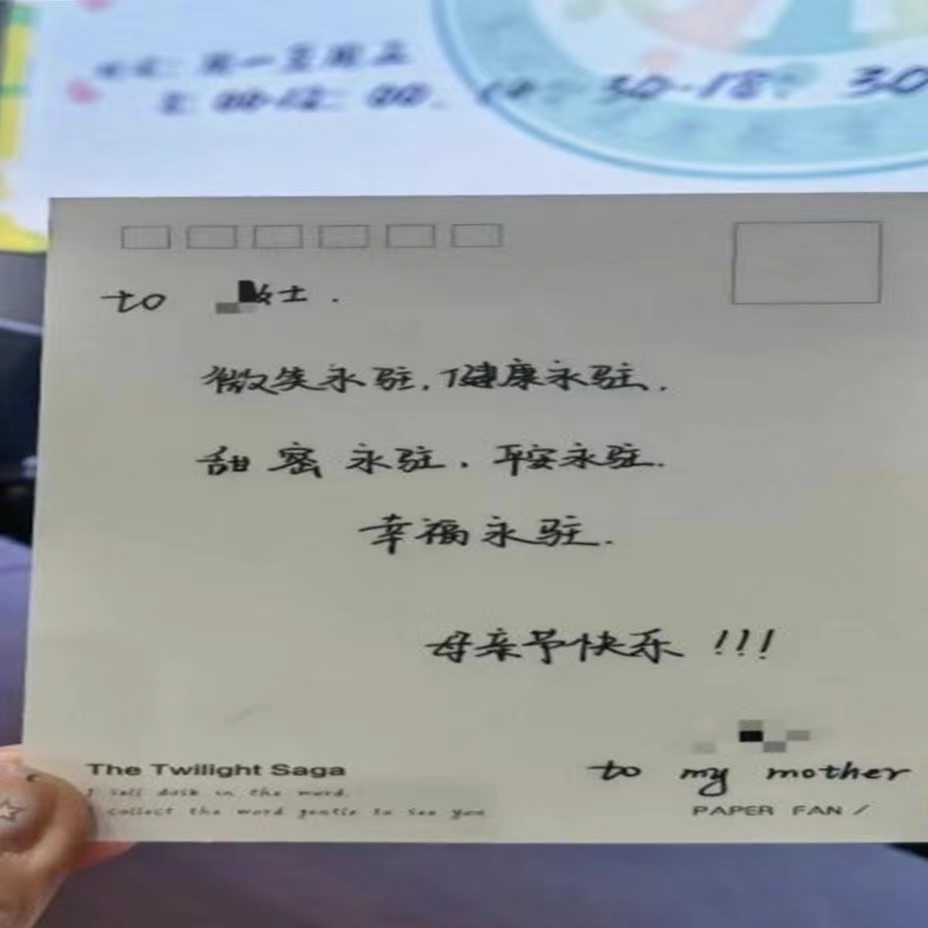 周一至周五
00-12:00. 14:30-18:30
to 女士.
微笑永驻.健康永驻.
甜蜜永驻.平安永驻.
幸福永驻.
母亲节快乐!!!
to my mother
The Twilight Saga
I sell dusk in the word.
collect the word gentle to see you
PAPER FAN /